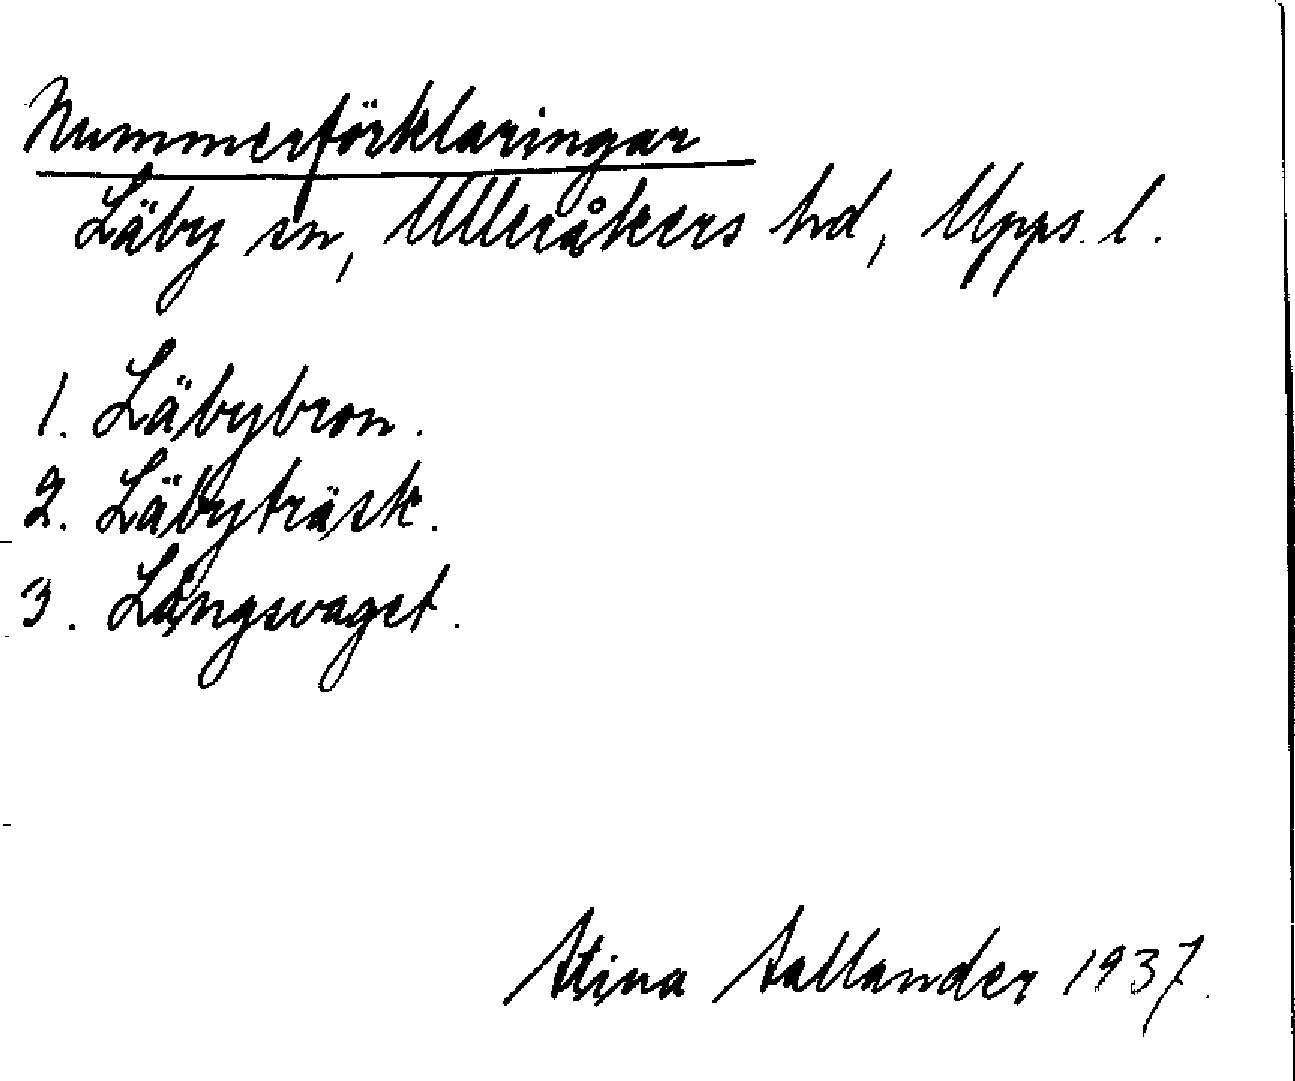 Nummerförklaringar
Läby sn, Ulleråkers hd, Upps. l.
1. Läbybron.
2. Läbyträsk.
3. Långsvaget.
Stina Sallander 1937.